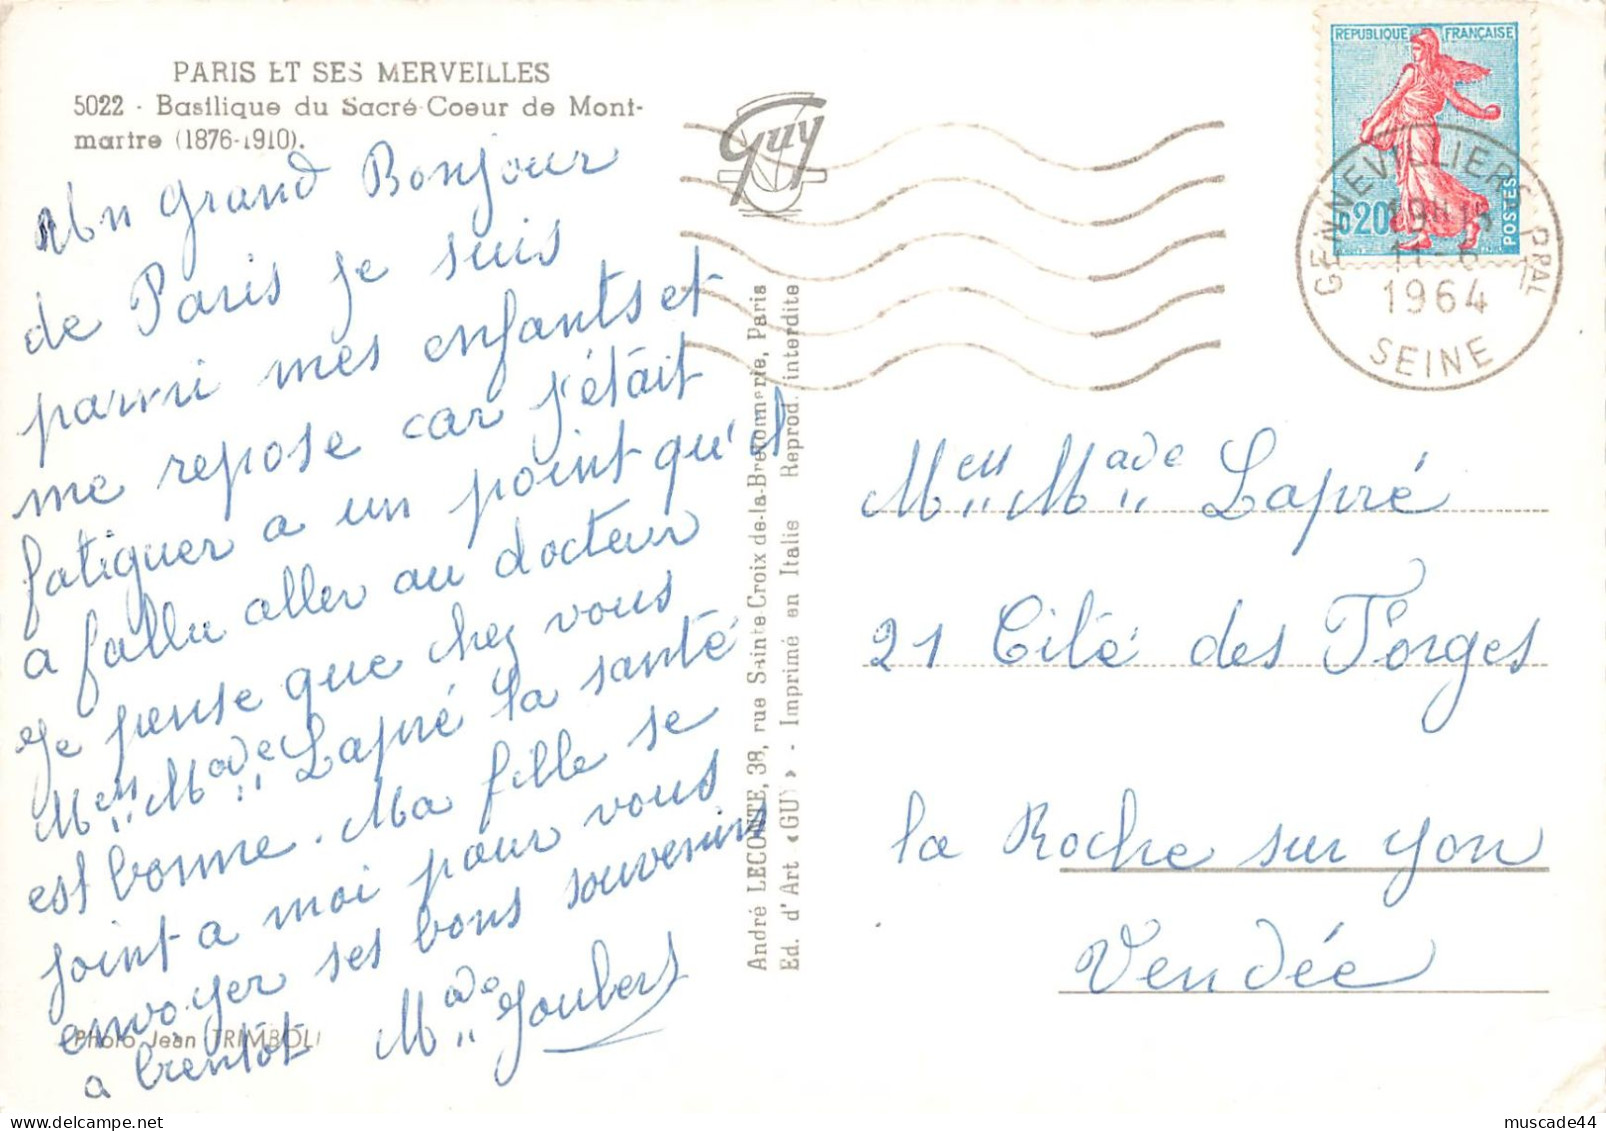 PARIS ET SES MERVEILLES
5022 - Basilique du Sacré-Coeur de Mont-
martre (1876-1910).
Un Grand Bonjour
de Paris je suis
parmi mes enfants et
me repose car j'étàit
fatiguer a un point qu'il
a fallu aller au docteur
Je pense que chez vous
Mr Made Lapré la santé
est bonne. Ma fille se
joint a moi pour vous
envoyer ses bons souvenirs
a bientôt Made Joubert
Photo Jean TRIMBOLI
Guy
André LECONTE, 38, rue Sainte-Croix-de-la-Bretonnerie, Paris
Ed. d'Art «GUY» - Imprimé en Italie Reprod. interdite
REPUBLIQUE FRANÇAISE
0,20
POSTES
GENNEVILLIERS PPAL
19H15
11-6
1964
SEINE
Mr Made Lapré
21 Cité des Forges
la Roche sur yon
Vendée
muscade44